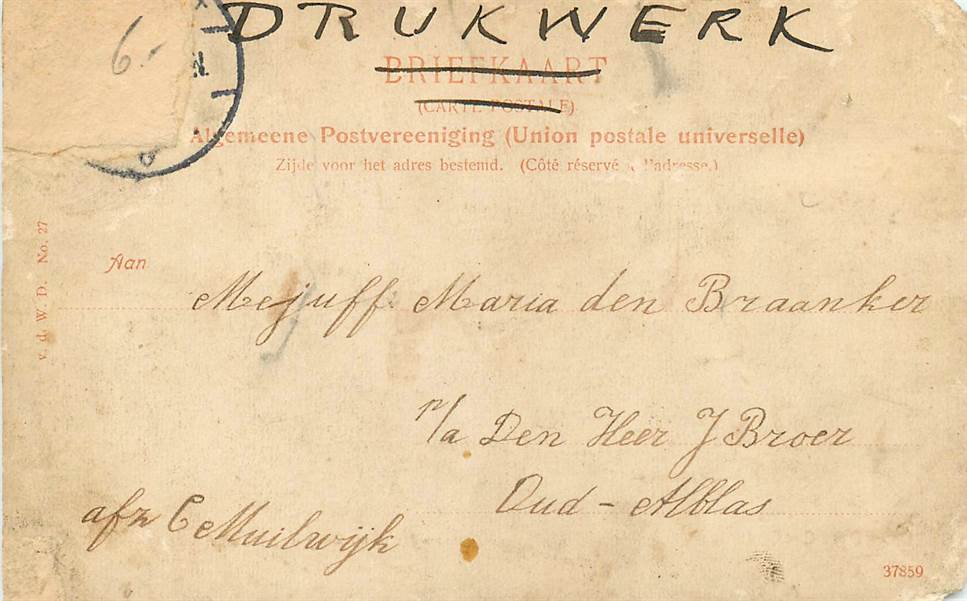 DRUKWERK
6.-
BRIEFKAART
(CARTE POSTALE)
Algemeene Postvereeniging (Union postale universelle)
Zijde voor het adres bestemd. (Côté réservé à l'adresse.)
v. d. W. D. No. 27
Aan
Mejuff. Maria den Braanker
p/a Den Heer J Broer
Oud - Alblas
afz C Muilwijk
37859